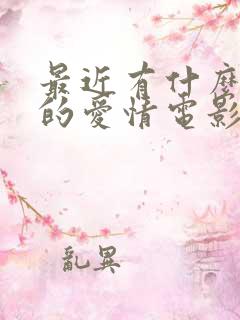 最近有什麼
的愛情電影
亂異